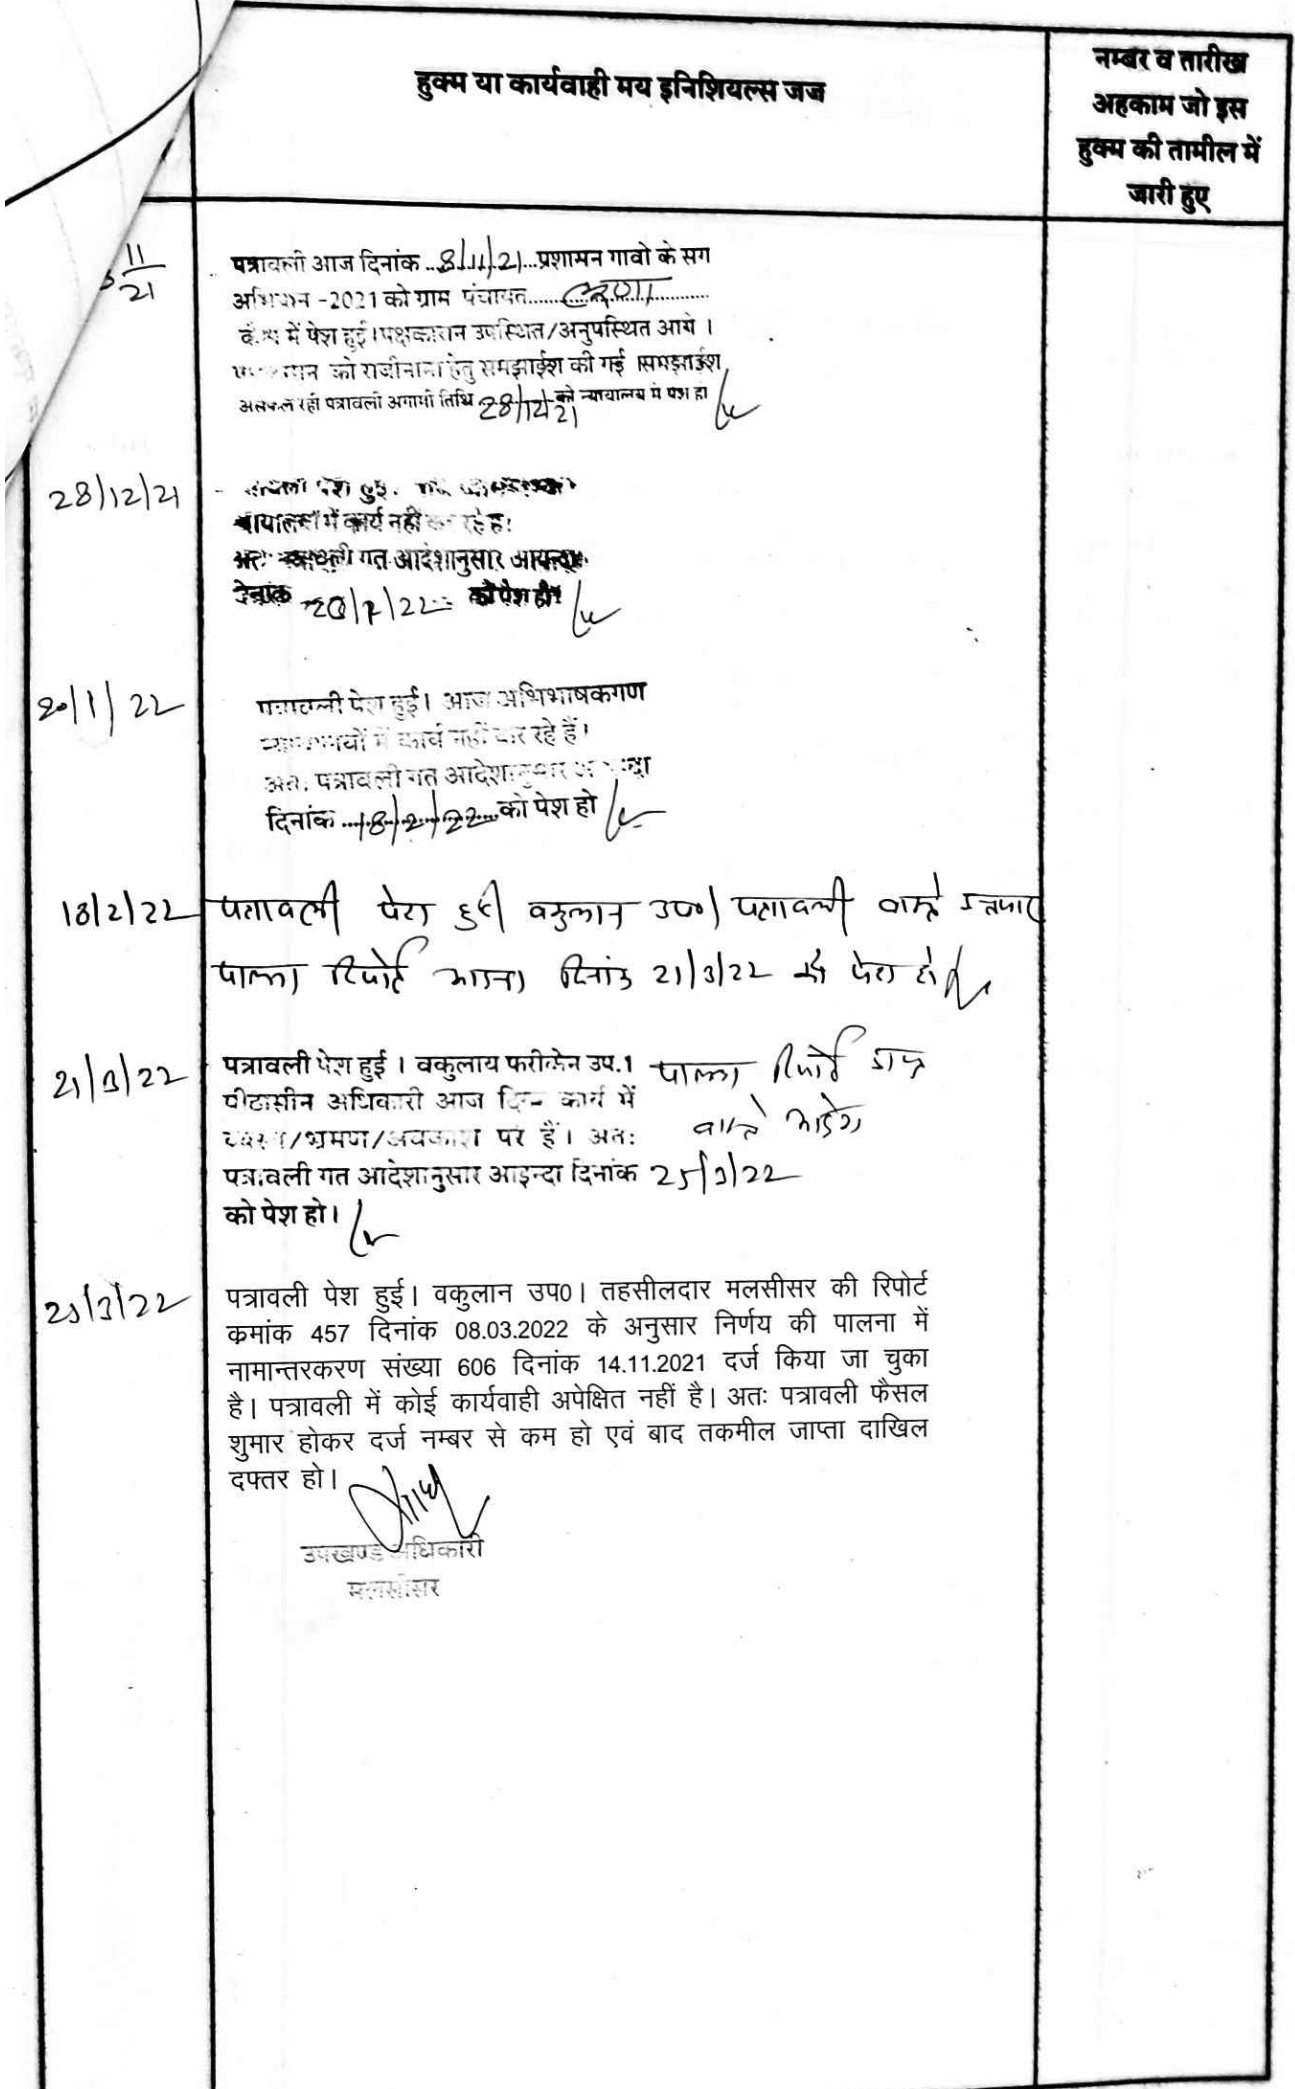 हुक्म या कार्यवाही मय इनिशियल्स जज
नम्बर व तारीख
अहकाम जो इस
हुक्म की तामील में
जारी हुए
11/21
पत्रावली आज दिनांक 8/11/21 प्रशामन गावो के सग
अभियान -2021 को ग्राम पंचायत
में पेश हुई। पक्षकारान उपस्थित/अनुपस्थित आये ।
को राजीनामा हेतु समझाईश की गई। समझाईश
असफल रही पत्रावली अगामी तिथि 28/12/21 को न्यायालय में पेश हो
28/12/21
पेश हुई.
में कार्य नहीं कर रहे हैं।
अतः पत्रावली गत आदेशानुसार आयन्दा
20/1/22 को पेश हो
20/1/22
पत्रावली पेश हुई। आज अभिभाषकगण
न्यायालयों में कार्य नहीं कर रहे हैं।
अतः पत्रावली गत आदेशानुसार आयन्दा
दिनांक 18/2/22 को पेश हो
18/2/22
पत्रावली पेश हुई। वकुलान उप०। पत्रावली वास्ते
पालना रिपोर्ट दिनांक 21/3/22 को पेश हो
21/3/22
पत्रावली पेश हुई । वकुलाय फरीकेन उप.1 पालना रिपोर्ट प्राप्त
पीठासीन अधिकारी आज कार्य में
व्यस्त/भ्रमण/अवकाश पर हैं। अतः वास्ते आदेश
पत्रावली गत आदेशानुसार आइन्दा दिनांक 25/3/22
को पेश हो।
25/3/22
पत्रावली पेश हुई। वकुलान उप0। तहसीलदार मलसीसर की रिपोर्ट
कमांक 457 दिनांक 08.03.2022 के अनुसार निर्णय की पालना में
नामान्तरकरण संख्या 606 दिनांक 14.11.2021 दर्ज किया जा चुका
है। पत्रावली में कोई कार्यवाही अपेक्षित नहीं है। अतः पत्रावली फैसल
शुमार होकर दर्ज नम्बर से कम हो एवं बाद तकमील जाप्ता दाखिल
दफ्तर हो।
उपखण्ड अधिकारी
मलसीसर